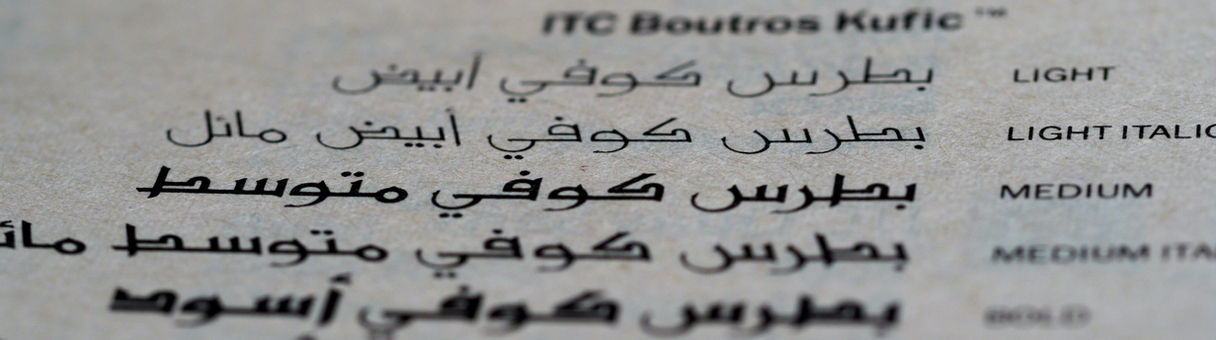 ITC Boutros Kufic™
بطرس كوفي أبيض LIGHT
بطرس كوفي أبيض مائل LIGHT ITALIC
بطرس كوفي متوسط MEDIUM
بطرس كوفي متوسط MEDIUM
بطرس كوفي أسود BOLD